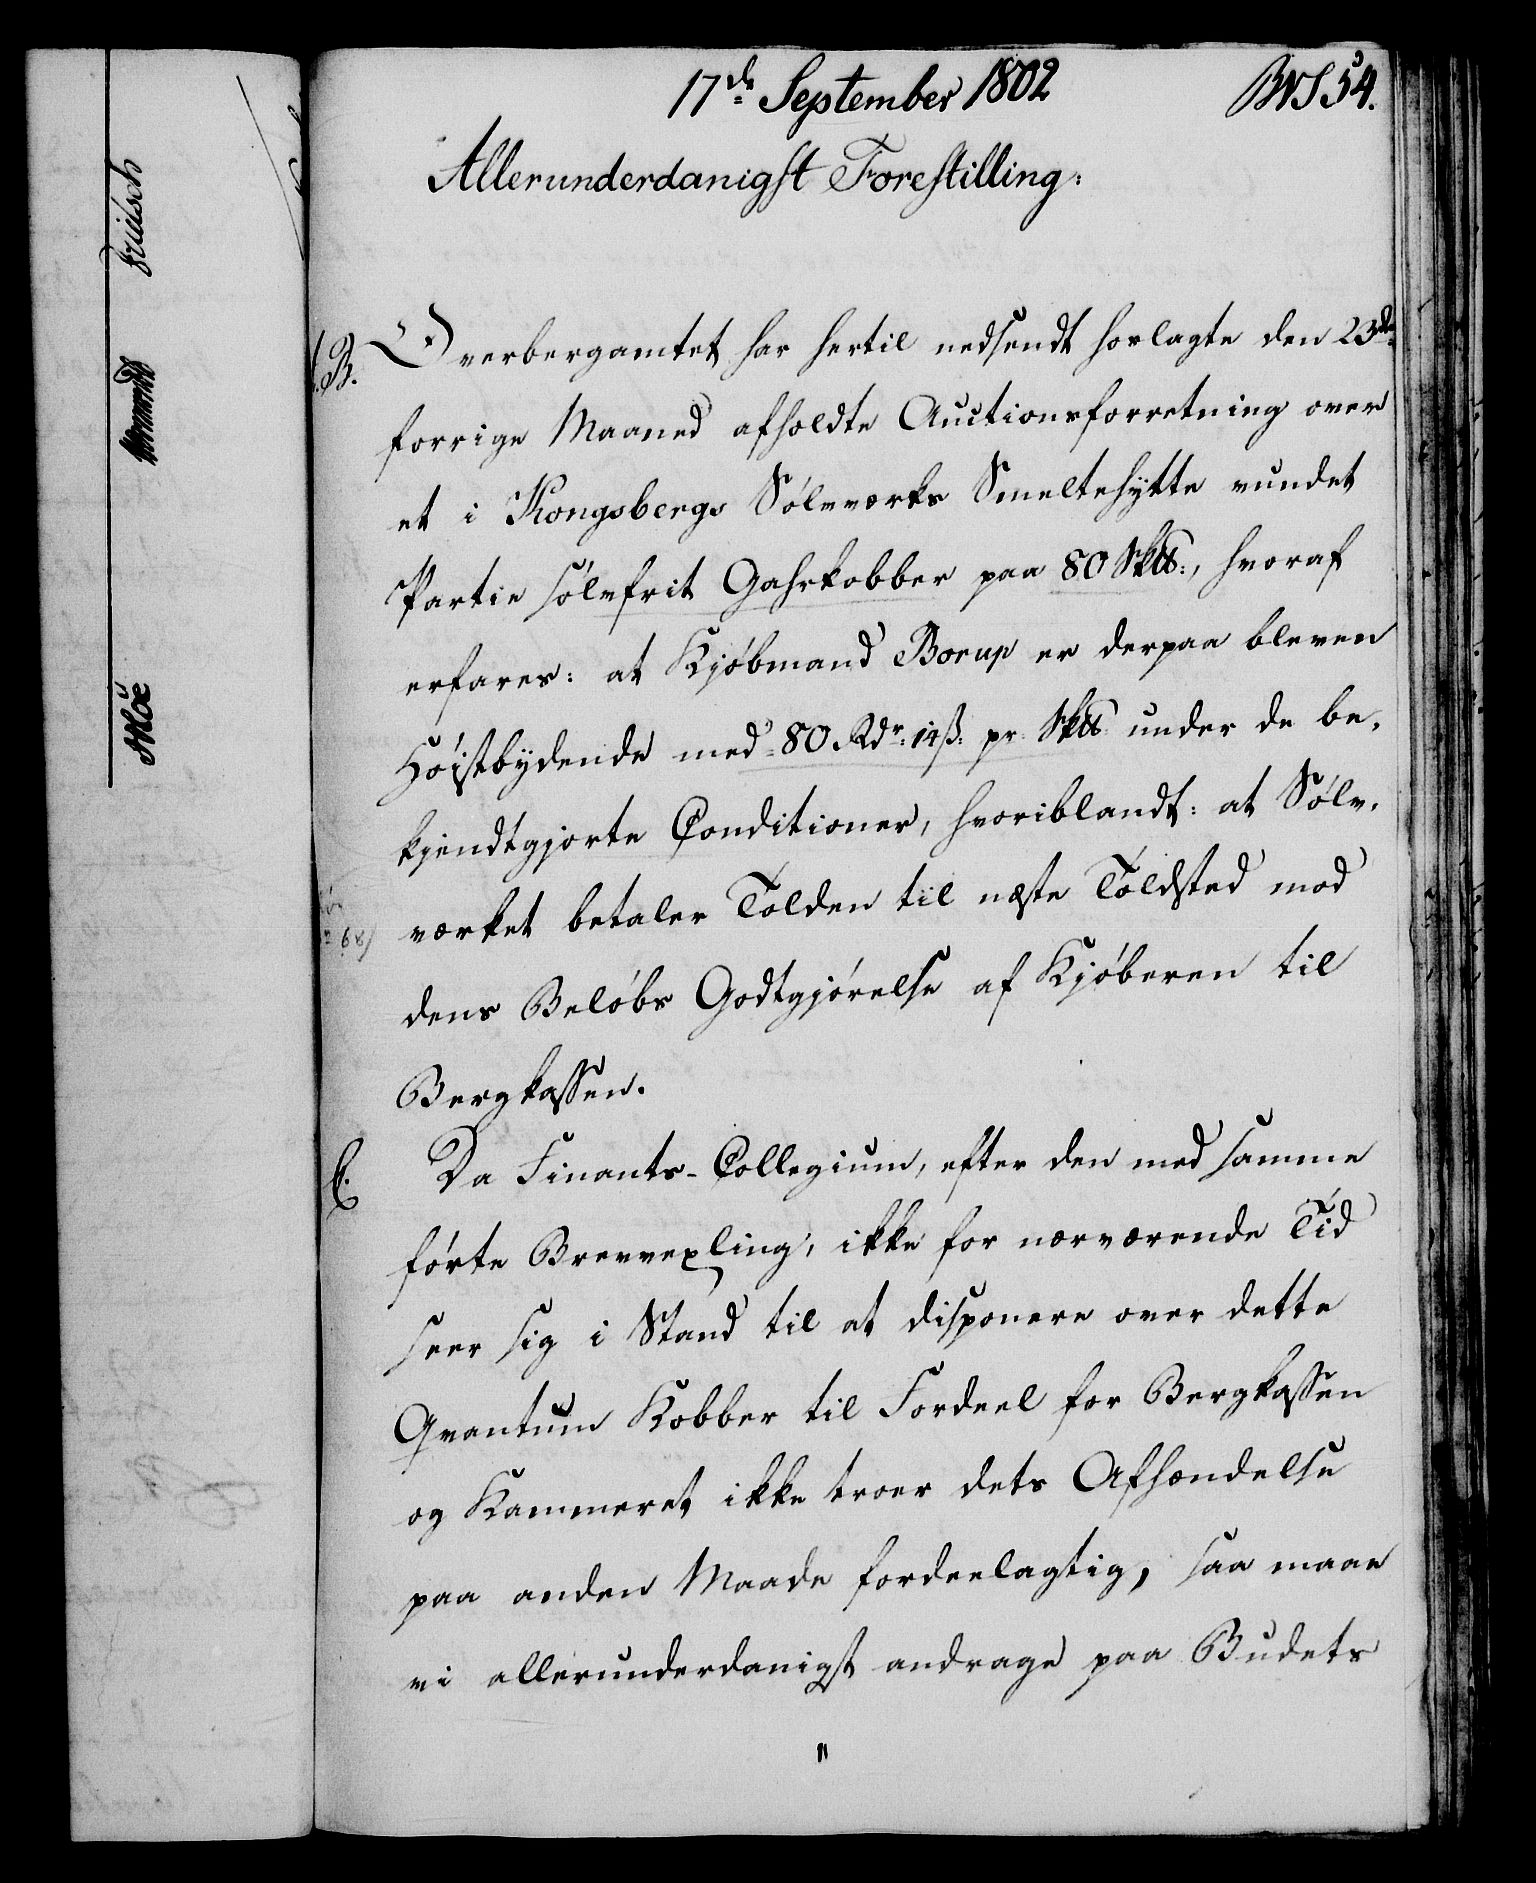 17de September 1802
BWS 54.
Allerunderdanigst Forestilling:
B.
Overbergamtet har hertil nedsendt hoslagte den 23de
forrige Maaned afholdte Auctionsforretning over
et i Kongsbergs Sölvværks Smeltehytte vundet
Partie sölvfrit Gahrkobber paa 80 Sk℔:, hvoraf
erfares: at Kjöbmand Borup er derpaa bleven
Höistbydende med 80 Rdr: 14 ß: pr Sk℔ under de be-
kjendtgjorte Conditioner, hvoriblandt: at Sölv-
værket betaler Tolden til næste Toldsted mod
68)
dens Belöbs Godtgjörelse af Kjöberen til
Bergkassen.
C.
Da Finants-Collegium, efter den med samme
förte Brevvexling, ikke for nærværende Tid
seer sig i Stand til at disponere over dette
Qvantum Kobber til Fordeel for Bergkassen
og Kammeret ikke troer dets Afhændelse
paa anden Maade fordeelagtig, saa maae
vi allerunderdanigst andrage paa Budets
"